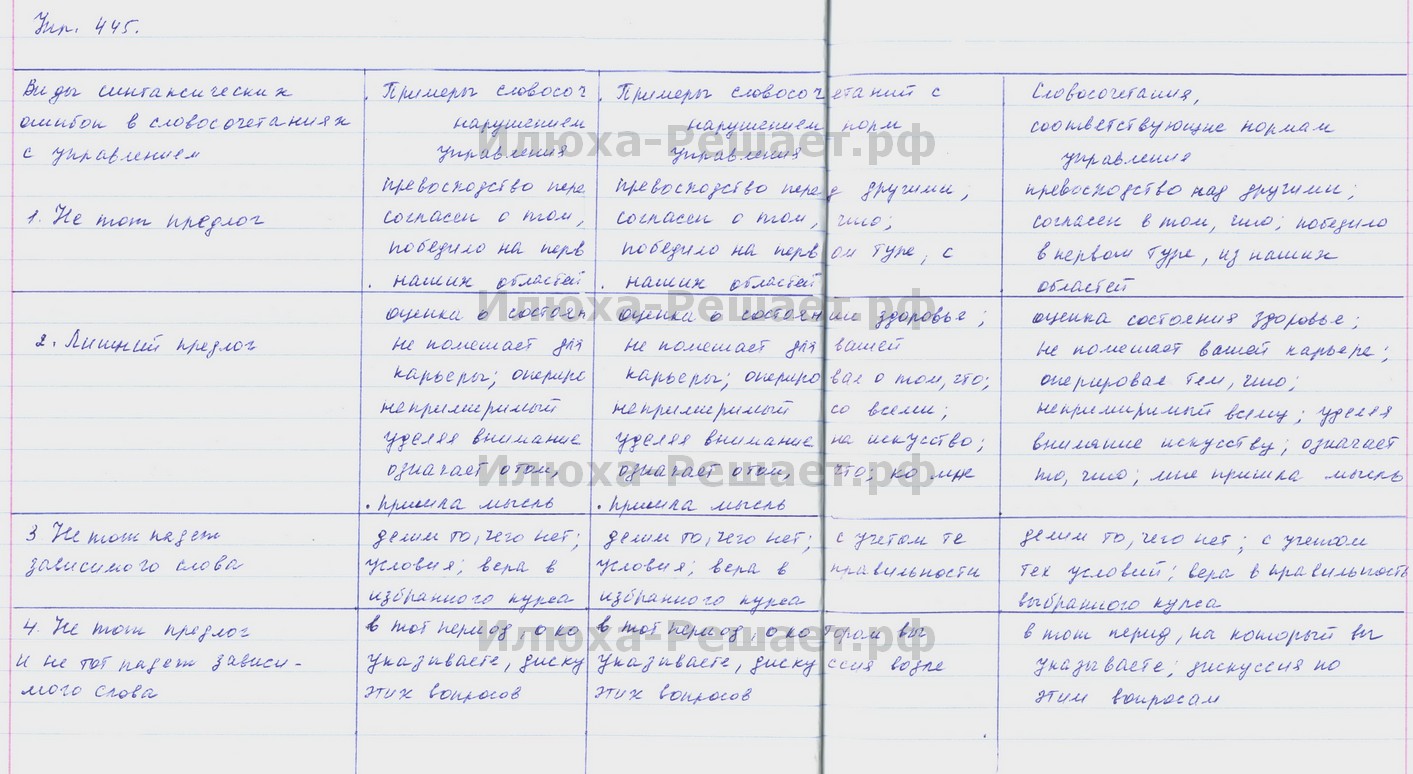 Упр. 445.
Виды синтаксических
ошибок в словосочетаниях
с управлением
Примеры словосоч
нарушением
управления
Примеры словосочетаний с
нарушением норм
управления
Словосочетания,
соответствующие нормам
управления
1. Не тот предлог
превосходство пере
согласен о том,
победило на перв
наших областей
превосходство перед другими;
согласен о том, что;
победило на первом туре, с
наших областей
превосходство над другими;
согласен в том, что; победило
в первом туре, из наших
областей
2. Лишний предлог
оценка о состоян
не помешает для
карьеры; опериро
непримиримый
уделяя внимание
означает о том,
пришла мысль
оценка о состоянии здоровье;
не помешает для вашей
карьеры; оперировал о том, что;
непримиримый со всеми;
уделяя внимание на искусство;
означает о том, что; ко мне
пришла мысль
оценка состояния здоровье;
не помешает вашей карьере;
оперировал тем, что;
непримиримый всему; уделяя
внимание искусству; означает
то, что; мне пришла мысль
3 Не тот падеж
зависимого слова
делим то, чего нет;
условия; вера в
избранного курса
делим то, чего нет; с учетом те
условия; вера в правильности
избранного курса
делим то, чего нет; с учетом
тех условий; вера в правильность
выбранного курса
4. Не тот предлог
и не тот падеж зависи-
мого слова
в тот период, о ко
указываете, диску
этих вопросов
в тот период, о котором вы
указываете, дискуссия возле
этих вопросов
в тот перид, на который вы
указываете; дискуссия по
этим вопросам
Илюха-Решает.рф
Илюха-Решает.рф
Илюха-Решает.рф
Илюха-Решает.рф